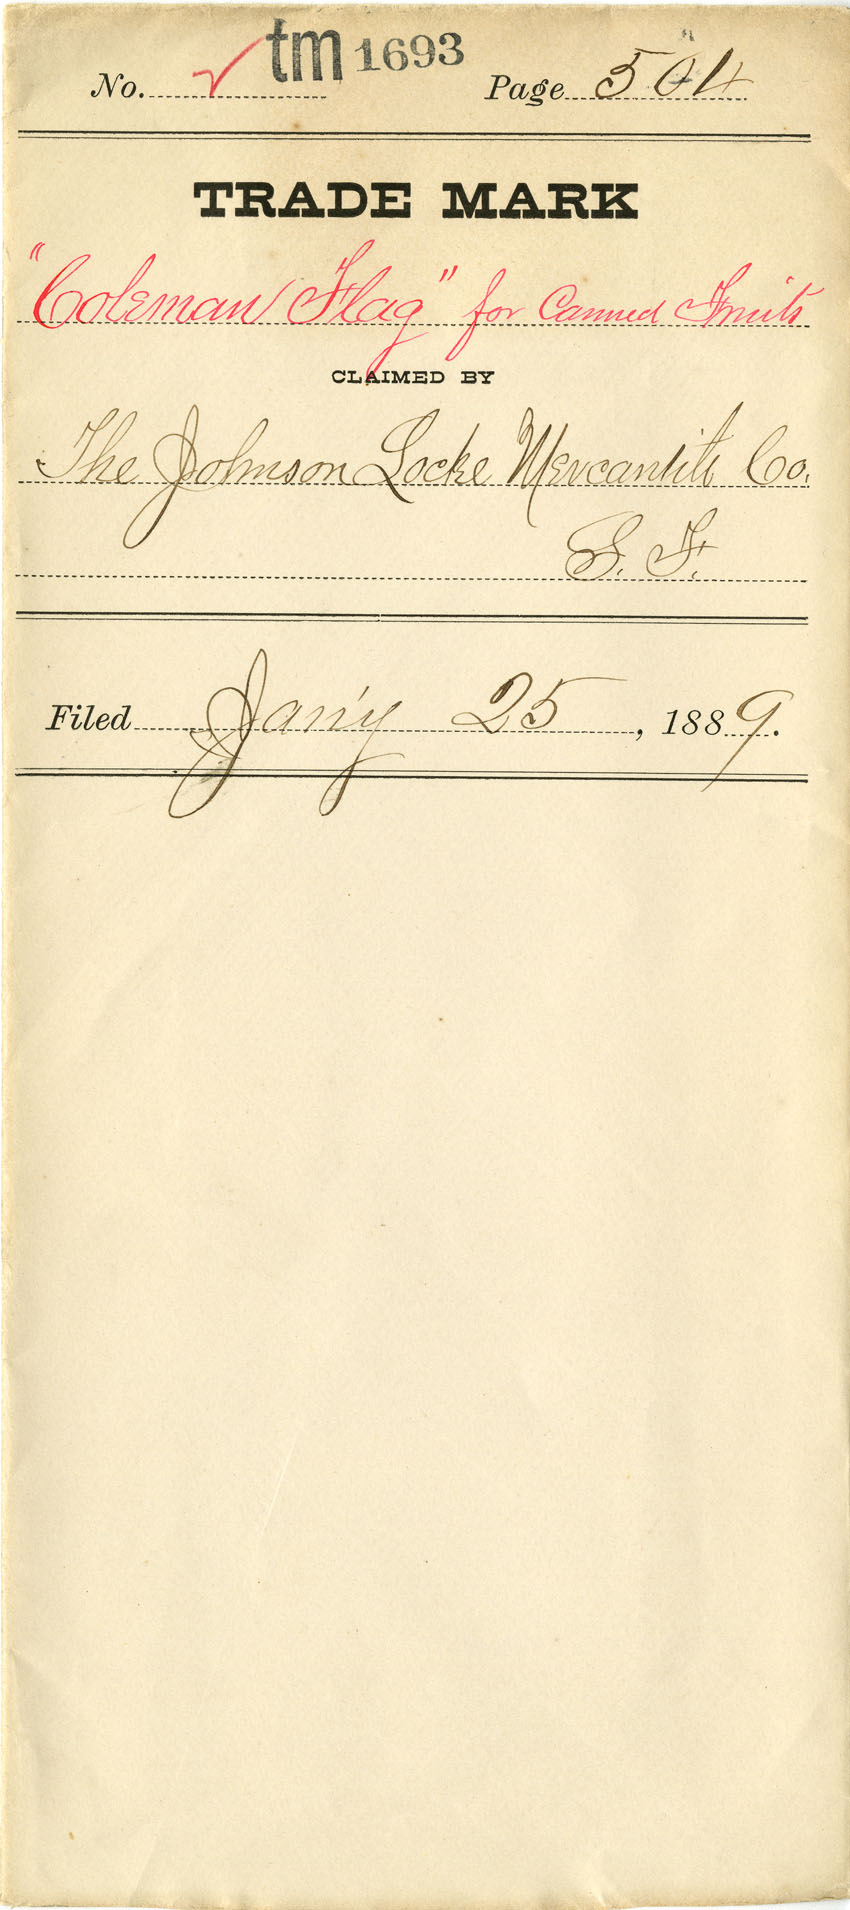 No. ✓ tm 1693 Page 504
TRADE MARK
"Coleman Flag" for Canned Fruits
CLAIMED BY
The Johnson Locke Mercantile Co.
S. F.
Filed Jan'y 25, 1889.